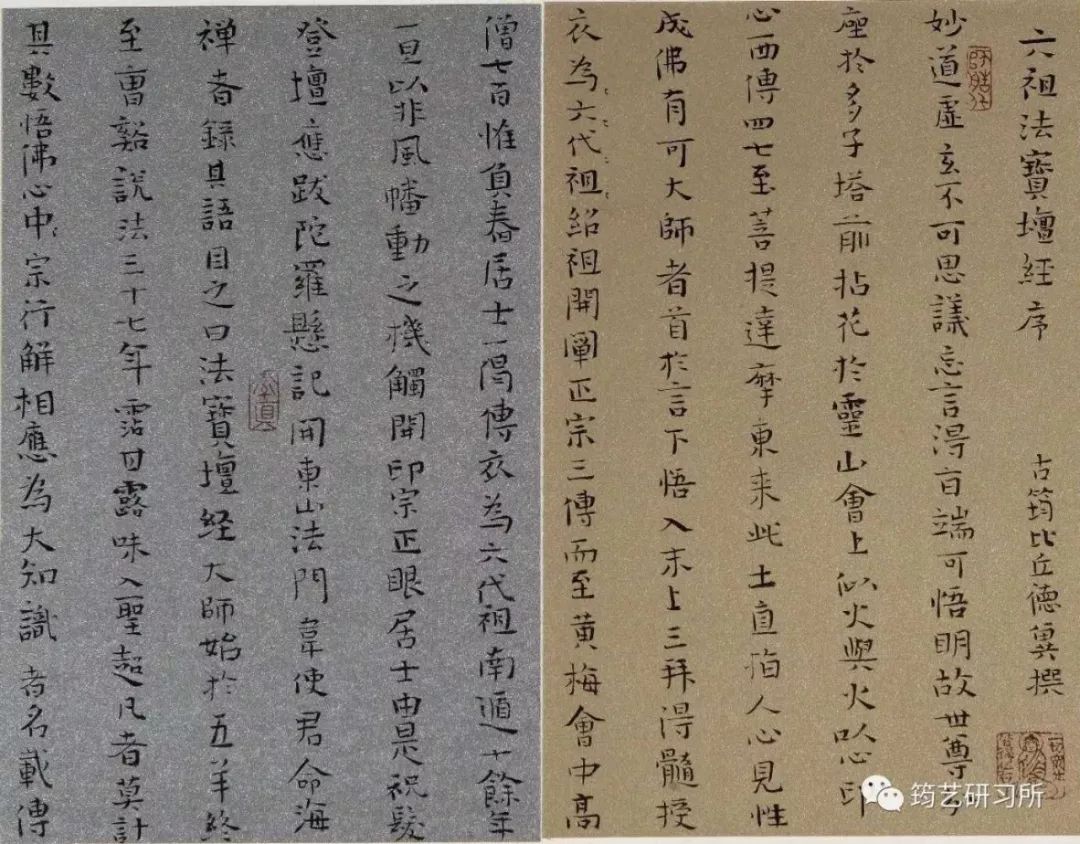 六祖法寶壇經序 古筠比丘德異撰
妙道虛玄不可思議忘言得旨端可悟明故世尊分
座於多子塔前拈花於靈山會上似火與火以心印
心西傳四七至菩提達摩東来此土直指人心見性
成佛有可大師者首於言下悟入末上三拜得髓授
衣為六代祖紹祖開闡正宗三傳而至黄梅會中高
僧七百惟負舂居士一偈傳衣為六代祖南遁十餘年
一旦以非風幡動之機觸開印宗正眼居士由是祝髮
登壇應跋陀羅懸記開東山法門韋使君命海
禅者録其語目之曰法寶壇经大師始於五羊終
至曹谿說法三十七年霑甘露味入聖超凡者莫計
其數悟佛心中宗行解相應為大知識者名載傳
筠艺研习所